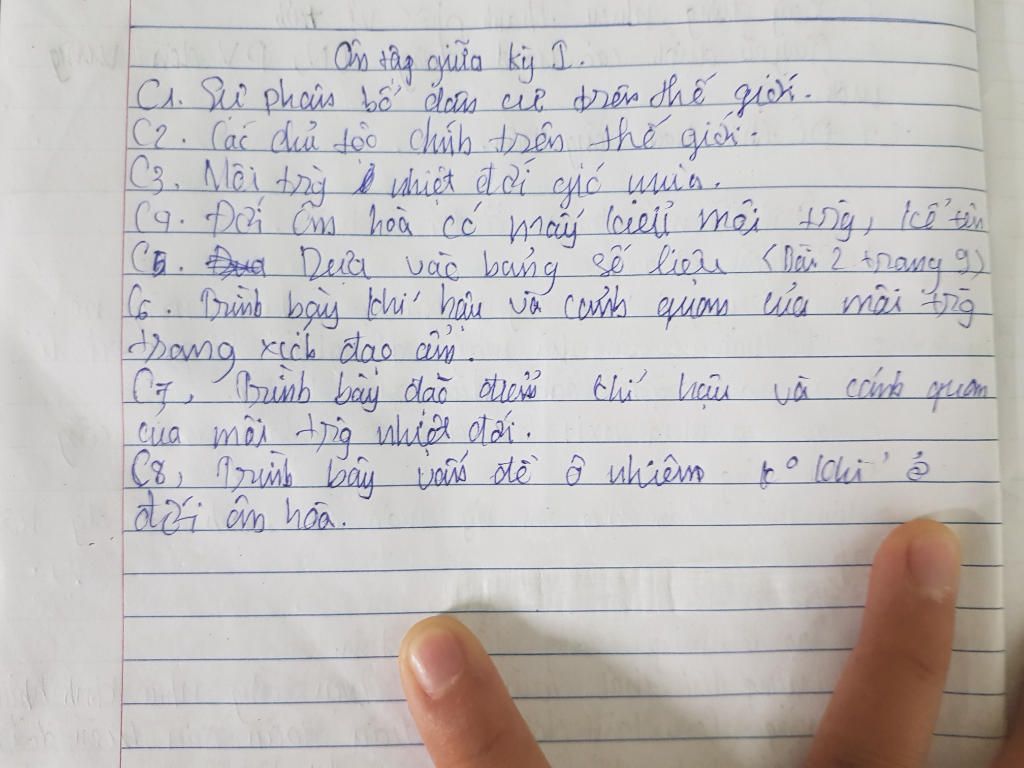 Ôn tập giữa kỳ I.
C1. Sự phân bố dân cư trên thế giới.
C2. Các chủ tộc chính trên thế giới.
C3. Môi trg nhiệt đới gió mùa.
C4. Đới ôn hoà có mấy kiểu môi trg, kể tên
C5. Dựa vào bảng số liệu (Bài 2 trang 9)
C6. Trình bày khí hậu và cảnh quan của môi trg
trong xích đạo ẩm.
C7, Trình bày đặc điểm khí hậu và cảnh quan
của môi trg nhiệt đới.
C8, Trình bày vấn đề ô nhiễm k° khí ở
đới ôn hòa.